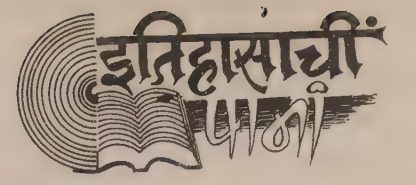 इतिहासाचीं
पानां